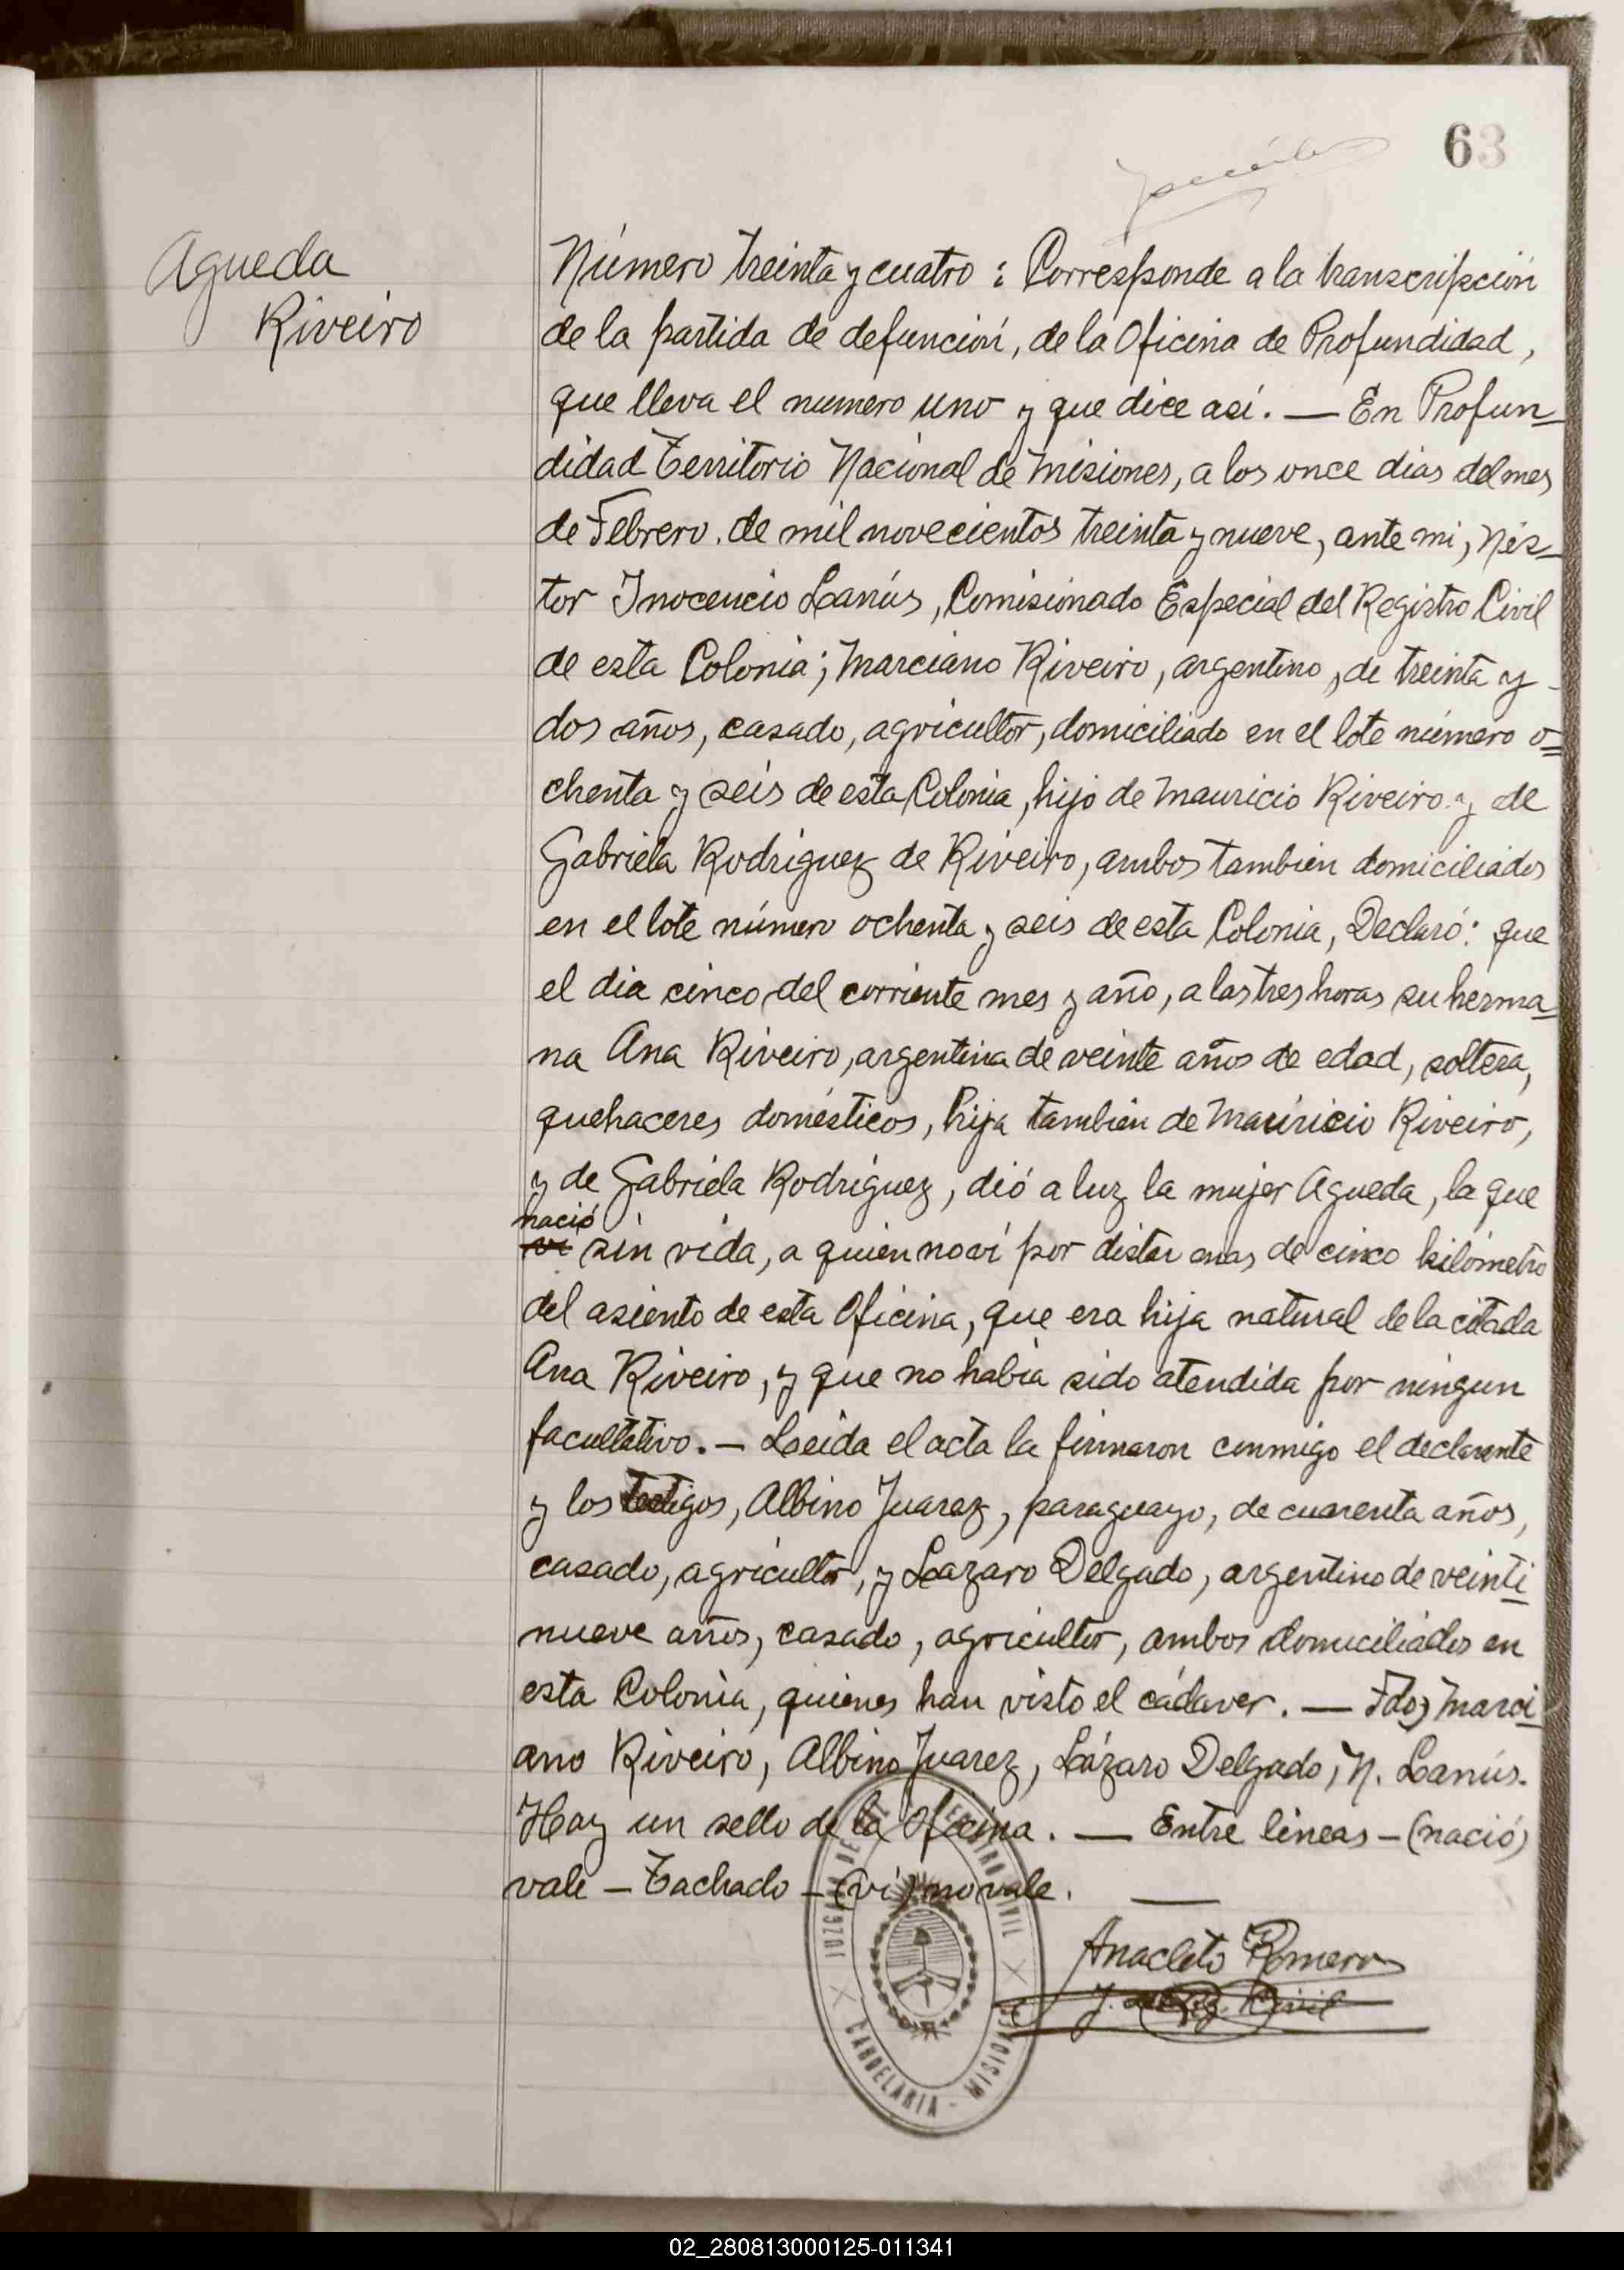 63
Agueda
Riveiro
Número treinta y cuatro : Corresponde a la transcripción
de la partida de defunción, de la Oficina de Profundidad,
que lleva el numero uno y que dice así. — En Profun-
didad Territorio Nacional de Misiones, a los once dias del mes
de Febrero. de mil novecientos treinta y nueve, ante mi, Nés-
tor Inocencio Lanús, Comisionado Especial del Registro Civil
de esta Colonia; Marciano Riveiro, argentino, de treinta y
dos años, casado, agricultor, domiciliado en el lote número o=
chenta y seis de esta Colonia, hijo de Mauricio Riveiro y de
Gabriela Rodríguez de Riveiro, ambos también domiciliados
en el lote número ochenta y seis de esta Colonia, Declaró: que
el dia cinco del corriente mes y año, a las tres horas su herma-
na Ana Riveiro, argentina de veinte años de edad, soltera,
quehaceres domésticos, hija también de Mauricio Riveiro,
y de Gabriela Rodríguez, dió a luz la mujer Agueda, la que
nació
vi sin vida, a quien no ví por distar mas de cinco kilómetro
del asiento de esta Oficina, que era hija natural de la citada
Ana Riveiro, y que no había sido atendida por ningun
facultativo. — Leída el acta la firmaron conmigo el declarante
y los testigos, Albino Juarez, paraguayo, de cuarenta años,
casado, agricultor, y Lazaro Delgado, argentino de veinti-
nueve años, casado, agricultor, ambos domiciliados en
esta Colonia, quienes han visto el cádaver. — Fdo) Marci-
ano Riveiro, Albino Juarez, Lázaro Delgado, N. Lanús.
Hay un sello de la Oficina. — Entre líneas — (nació)
vale — Tachado — (vi) no vale. —
Anacleto Romero
J. Civil
CANDELARIA - MISIONES
02_280813000125-011341